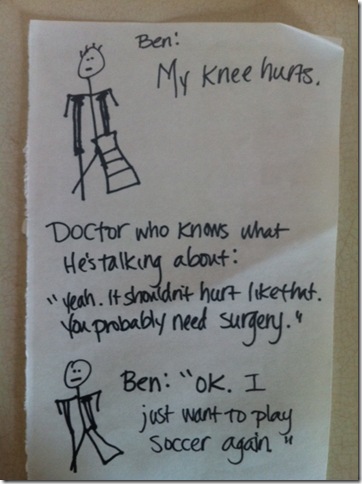 Ben:
My knee hurts.
Doctor who knows what
He's talking about:
"Yeah. It shouldn't hurt like that.
You probably need surgery."
Ben: "OK. I
just want to play
soccer again."